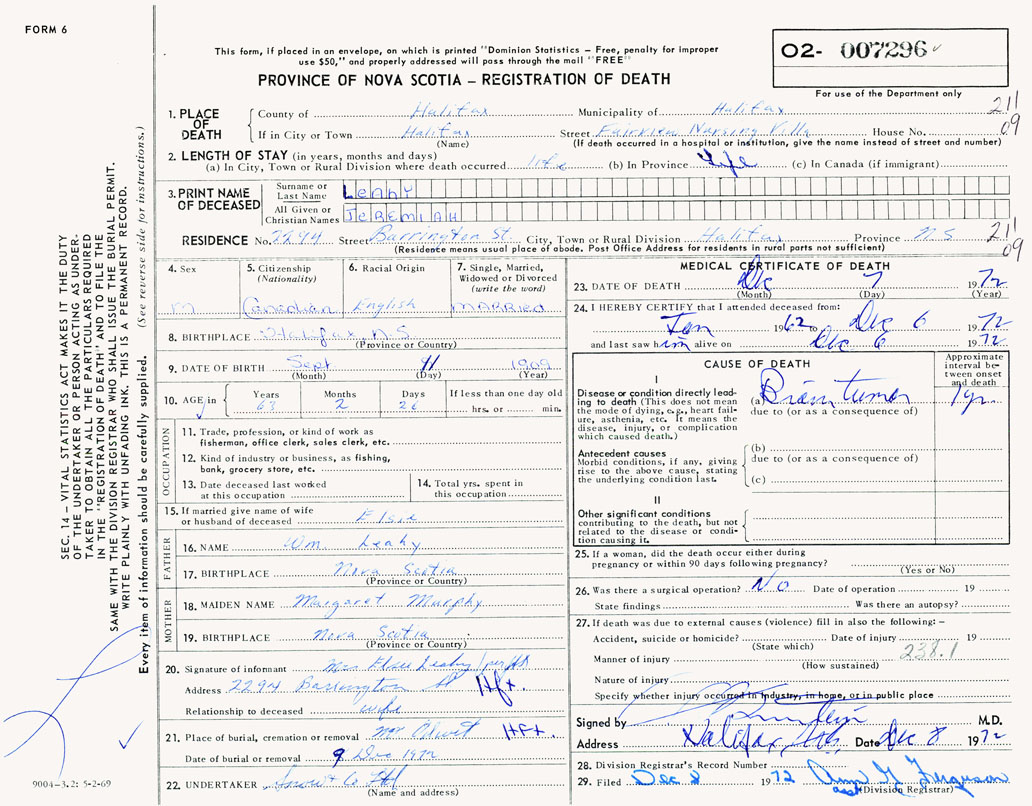 FORM 6
This form, if placed in an envelope, on which is printed "Dominion Statistics – Free, penalty for improper
use $50," and properly addressed will pass through the mail "FREE"
PROVINCE OF NOVA SCOTIA – REGISTRATION OF DEATH
O2- 007296
For use of the Department only
211
09
1. PLACE OF DEATH
County of Halifax Municipality of Halifax
If in City or Town Halifax Street Fairview Nursing Villa House No.
(Name) (If death occurred in a hospital or institution, give the name instead of street and number)
2. LENGTH OF STAY (in years, months and days)
(a) In City, Town or Rural Division where death occurred life (b) In Province Life (c) In Canada (if immigrant)
3. PRINT NAME OF DECEASED
Surname or Last Name LEAHY
All Given or Christian Names JEREMIAH
RESIDENCE No. 2294 Street Barrington St. City, Town or Rural Division Halifax Province N S
(Residence means usual place of abode. Post Office Address for residents in rural parts not sufficient)
211
09
4. Sex
M
5. Citizenship
(Nationality)
Canadian
6. Racial Origin
English
7. Single, Married,
Widowed or Divorced
(write the word)
MARRied
8. BIRTHPLACE Halifax, N.S.
(Province or Country)
9. DATE OF BIRTH Sept 11 1909
(Month) (Day) (Year)
10. AGE in
Years Months Days If less than one day old
63 2 26 hrs. or min.
OCCUPATION
11. Trade, profession, or kind of work as
fisherman, office clerk, sales clerk, etc.
12. Kind of industry or business, as fishing,
bank, grocery store, etc.
13. Date deceased last worked
at this occupation
14. Total yrs. spent in
this occupation
15. If married give name of wife
or husband of deceased Elsie
FATHER
16. NAME Wm. Leahy
17. BIRTHPLACE Nova Scotia
(Province or Country)
MOTHER
18. MAIDEN NAME Margaret Murphy
19. BIRTHPLACE Nova Scotia
(Province or Country)
20. Signature of informant Mrs Elsie Leahy / per
Address 2294 Barrington St Hfx.
Relationship to deceased wife
21. Place of burial, cremation or removal Mt Olivet HFX.
Date of burial or removal 9 Dec 1972
22. UNDERTAKER Snow & Co Ltd
(Name and address)
MEDICAL CERTIFICATE OF DEATH
23. DATE OF DEATH Dec 7 1972
(Month) (Day) (Year)
24. I HEREBY CERTIFY that I attended deceased from:
Jan 1962 to Dec 6 1972
and last saw him alive on Dec 6 1972
CAUSE OF DEATH
Approximate
interval be-
tween onset
and death
I
Disease or condition directly lead-
ing to death (This does not mean
the mode of dying, e.g., heart fail-
ure, asthenia, etc. It means the
disease, injury, or complication
which caused death.)
(a) Brain tumor 1 yr.
due to (or as a consequence of)
Antecedent causes
Morbid conditions, if any, giving
rise to the above cause, stating
the underlying condition last.
(b)
due to (or as a consequence of)
(c)
II
Other significant conditions
contributing to the death, but not
related to the disease or condi-
tion causing it.
25. If a woman, did the death occur either during
pregnancy or within 90 days following pregnancy?
(Yes or No)
26. Was there a surgical operation? No Date of operation 19
State findings Was there an autopsy?
27. If death was due to external causes (violence) fill in also the following: –
Accident, suicide or homicide? Date of injury 19
(State which)
Manner of injury 238.1
(How sustained)
Nature of injury
Specify whether injury occurred in industry, in home, or in public place
Signed by M.D.
Address Halifax Date Dec 8 1972
28. Division Registrar's Record Number
29. Filed Dec 8 1972 Ann G Ferguson
asst Division Registrar)
SEC. 14 – VITAL STATISTICS ACT MAKES IT THE DUTY
OF THE UNDERTAKER OR PERSON ACTING AS UNDER-
TAKER TO OBTAIN ALL THE PARTICULARS REQUIRED
IN THE "REGISTRATION OF DEATH" AND TO FILE THE
SAME WITH THE DIVISION REGISTRAR WHO SHALL ISSUE THE BURIAL PERMIT.
WRITE PLAINLY WITH UNFADING INK. THIS IS A PERMANENT RECORD.
Every item of information should be carefully supplied. (See reverse side for instructions.)
9004-3.2: 5-2-69